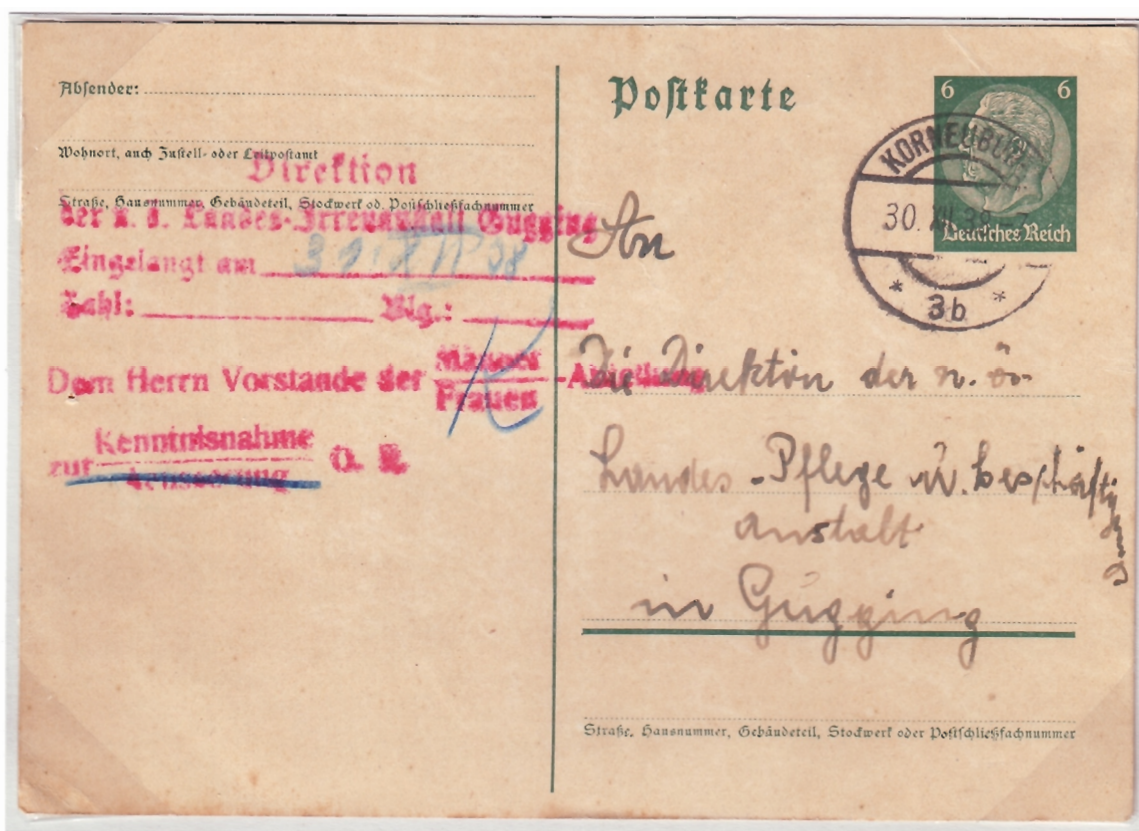 Absender:
Wohnort, auch Zustell- oder Leitpostamt
Straße, Hausnummer, Gebäudeteil, Stockwerk od. Postschließfachnummer
Direktion
der n. ö. Landes-Irrenanstalt Gugging
Eingelangt am 31. XII 38
Zahl: Blg.:
Dem Herrn Vorstande der Männer Frauen -Abteilung
zur Kenntnisnahme Aeusserung G. R.
Postkarte
6 6
Deutsches Reich
KORNEUBURG
30. XII. 38
* 3b *
An
die Direktion der n. ö.
Landes-Pflege u. beschäftigungs
anstalt
in Gugging
Straße, Hausnummer, Gebäudeteil, Stockwerk oder Postschließfachnummer